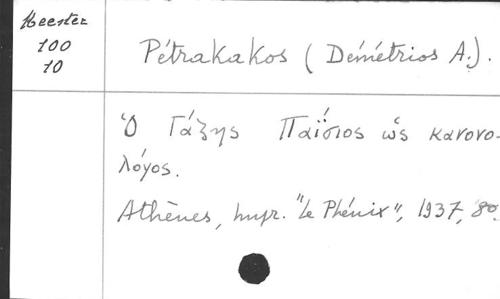 Meester
100
10
Pétrakakos (Démétrios A.).
Ὁ Γάζης Παΐσιος ὡς κανονο-
λόγος.
Athènes, impr. "Le Phénix", 1937, 8o.